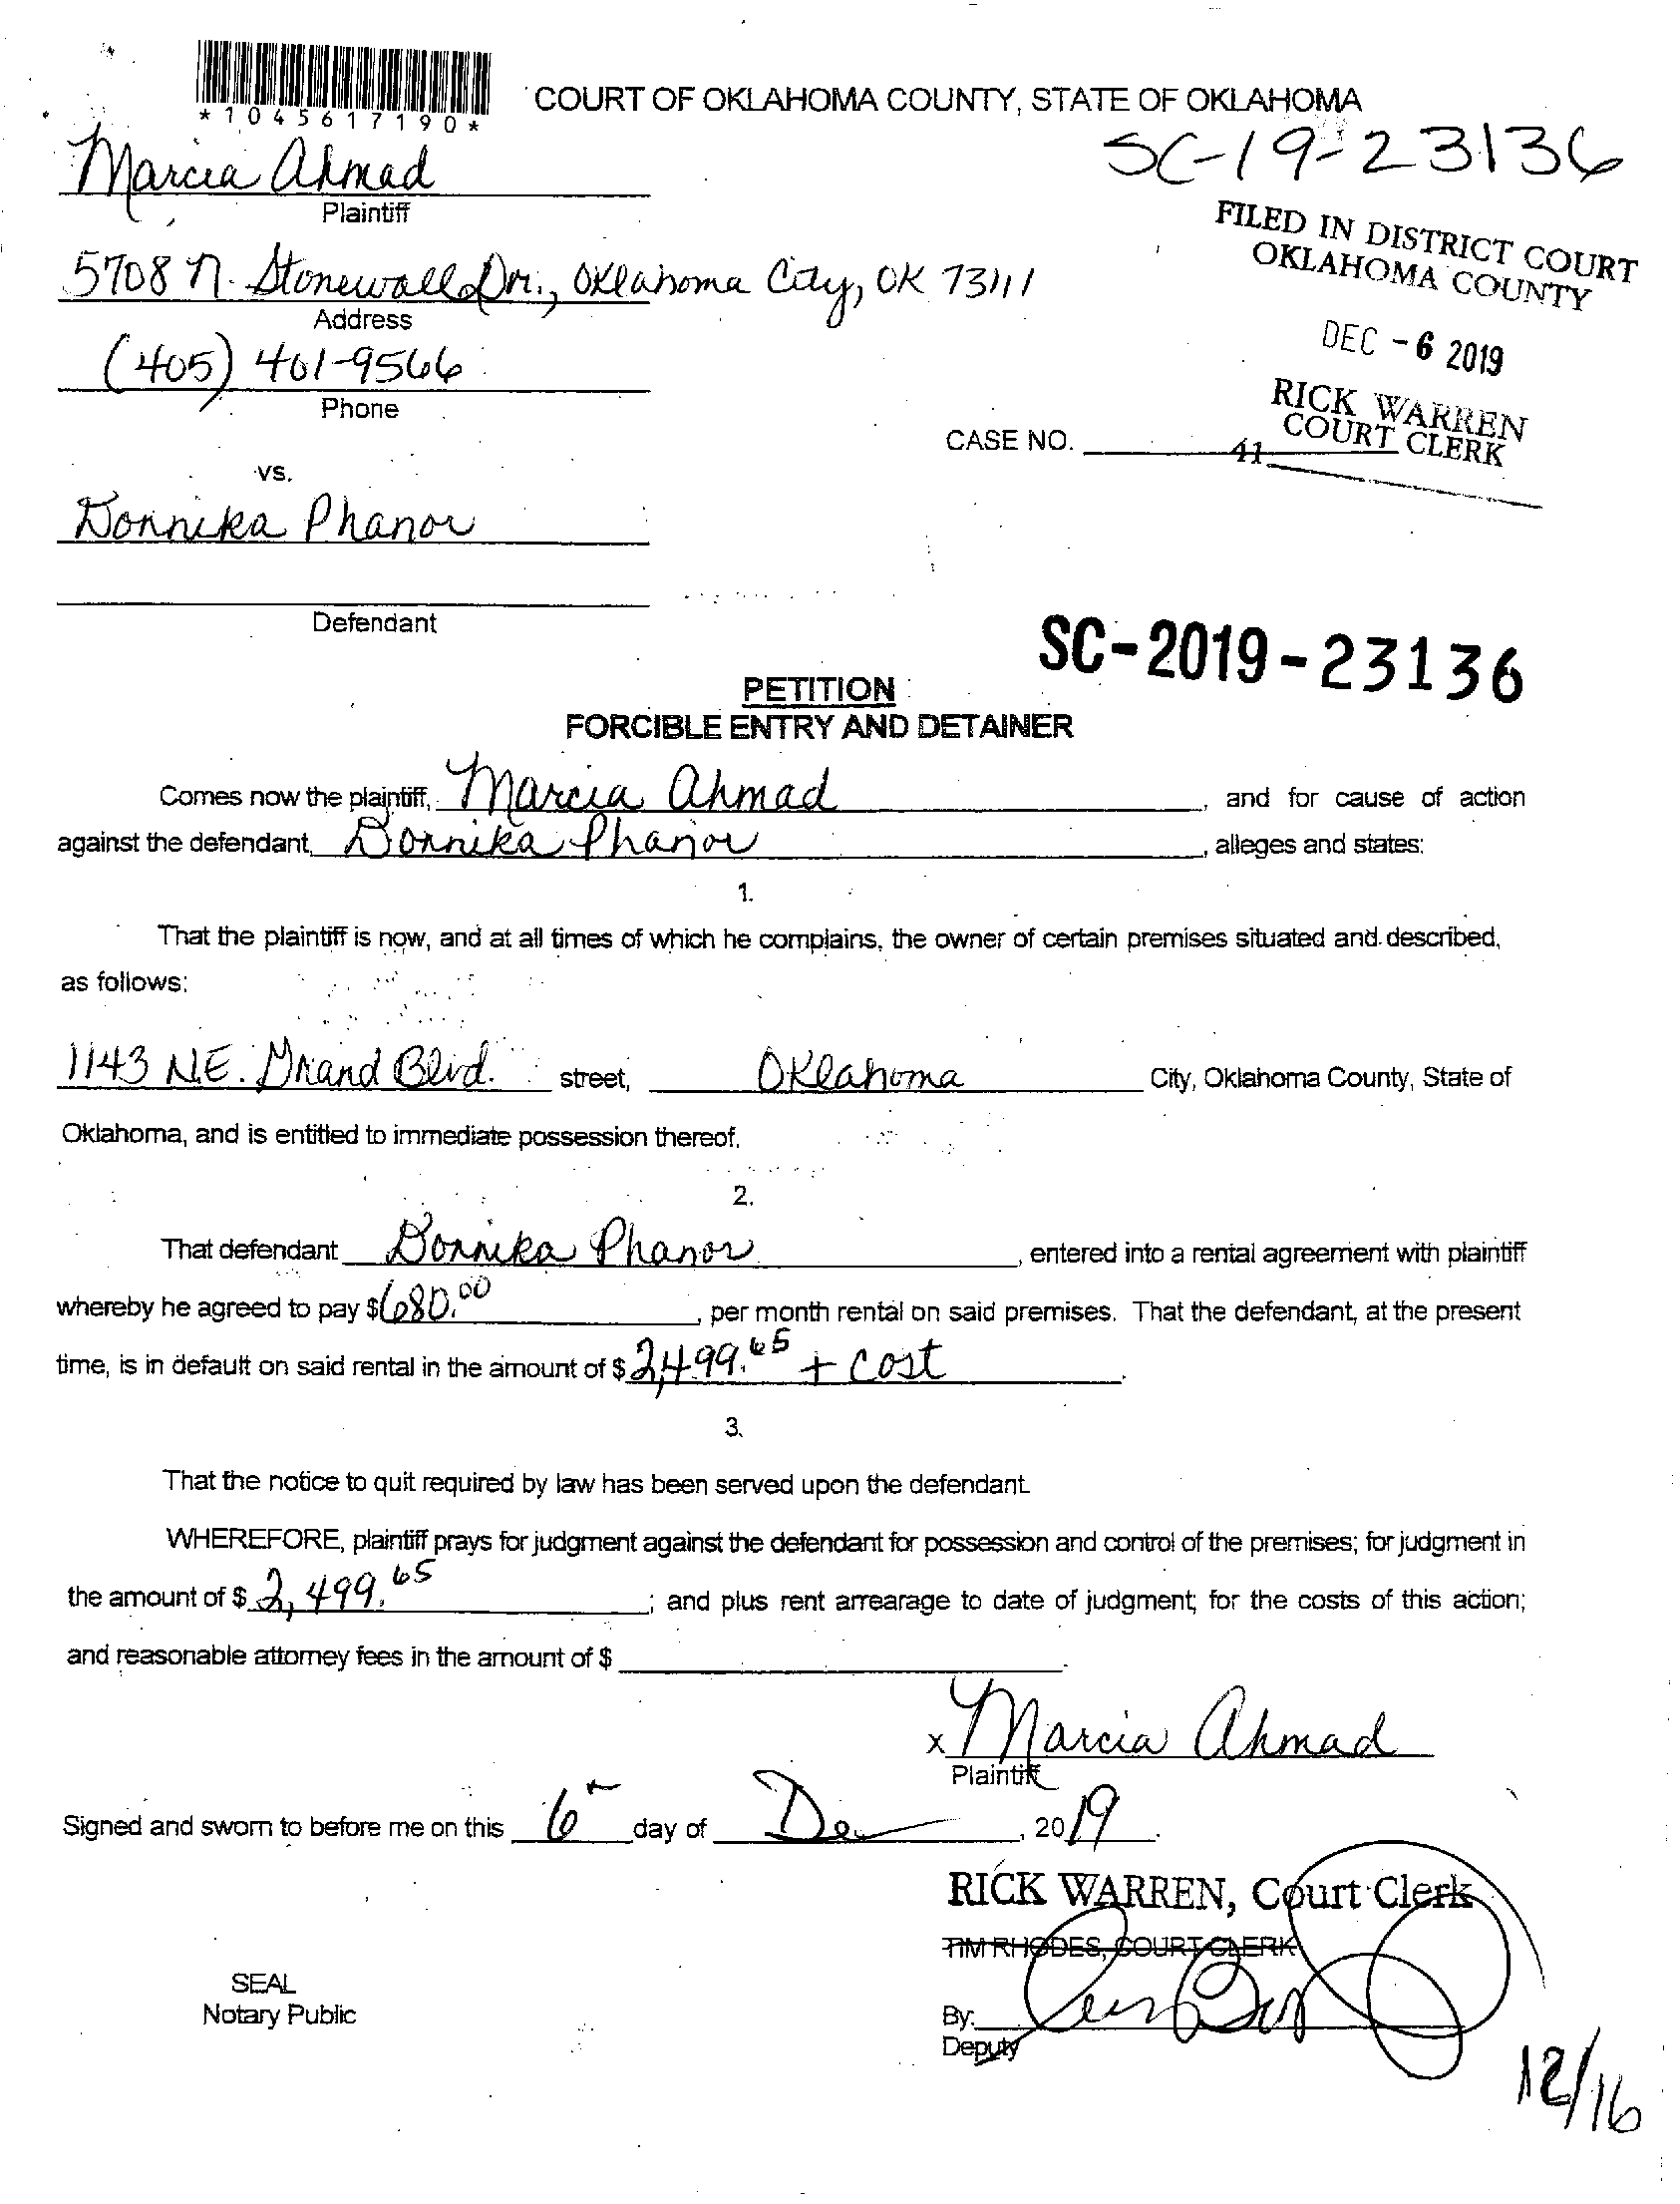 *1045617190*
COURT OF OKLAHOMA COUNTY, STATE OF OKLAHOMA
SC-19-23136
Marcia Ahmad
Plaintiff
FILED IN DISTRICT COURT
OKLAHOMA COUNTY
5708 N. Stonewall Dr., Oklahoma City, OK 73111
Address
DEC -6 2019
(405) 401-9566
Phone
RICK WARREN
COURT CLERK
CASE NO.
41
vs.
Donnika Phanor
Defendant
SC-2019-23136
PETITION
FORCIBLE ENTRY AND DETAINER
Comes now the plaintiff, Marcia Ahmad, and for cause of action
against the defendant, Donnika Phanor, alleges and states:
1.
That the plaintiff is now, and at all times of which he complains, the owner of certain premises situated and described,
as follows:
1143 N.E. Grand Blvd. street, Oklahoma City, Oklahoma County, State of
Oklahoma, and is entitled to immediate possession thereof.
2.
That defendant Donnika Phanor, entered into a rental agreement with plaintiff
whereby he agreed to pay $680.00, per month rental on said premises. That the defendant, at the present
time, is in default on said rental in the amount of $2,499.65 + Cost.
3.
That the notice to quit required by law has been served upon the defendant.
WHEREFORE, plaintiff prays for judgment against the defendant for possession and control of the premises; for judgment in
the amount of $2,499.65; and plus rent arrearage to date of judgment; for the costs of this action;
and reasonable attorney fees in the amount of $
x Marcia Ahmad
Plaintiff
Signed and sworn to before me on this 6th day of Dec, 2019.
RICK WARREN, Court Clerk
TIM RHODES, COURT CLERK
SEAL
Notary Public
By:
Deputy
12/16